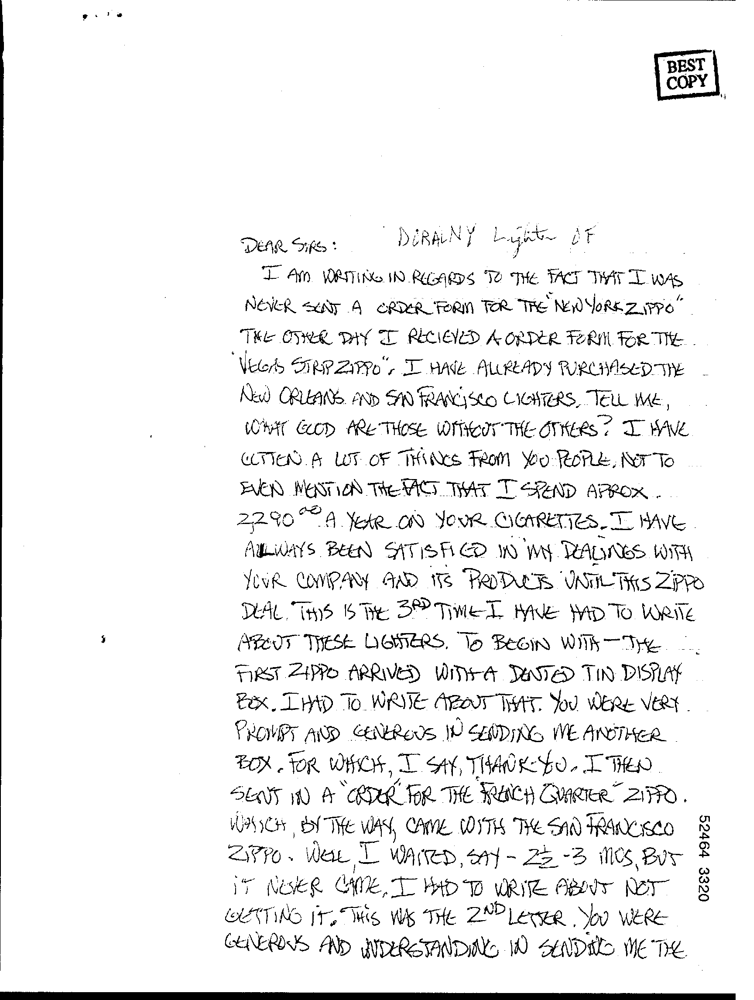 BEST
COPY
DEAR SIRS: Lighter OF
I AM WRITING IN REGARDS TO THE FACT THAT I WAS
NEVER SENT A ORDER FORM FOR THE "NEW YORK ZIPPO"
THE OTHER DAY I RECIEVED A ORDER FORM FOR THE
"VEGAS STRIP ZIPPO". I HAVE ALLREADY PURCHASED THE
NEW ORLEANS AND SAN FRANCISCO LIGHTERS, TELL ME,
WHAT GOOD ARE THOSE WITHOUT THE OTHERS? I HAVE
GOTTEN A LOT OF THINGS FROM YOU PEOPLE, NOT TO
EVEN MENTION THE FACT THAT I SPEND APROX.
2,290 00 A YEAR ON YOUR CIGARETTES. I HAVE
ALLWAYS BEEN SATISFIED IN MY DEALINGS WITH
YOUR COMPANY AND ITS PRODUCTS UNTIL THIS ZIPPO
DEAL. THIS IS THE 3RD TIME I HAVE HAD TO WRITE
ABOUT THESE LIGHTERS. TO BEGIN WITH - THE
FIRST ZIPPO ARRIVED WITH A DENTED TIN DISPLAY
BOX. I HAD TO WRITE ABOUT THAT. YOU WERE VERY
PROMPT AND GENEROUS IN SENDING ME ANOTHER
BOX. FOR WHICH, I SAY, THANK-YOU. I THEN
SENT IN A "ORDER" FOR THE "FRENCH QUARTER" ZIPPO.
WHICH, BY THE WAY, CAME WITH THE SAN FRANCISCO
ZIPPO. WELL, I WAITED, SAY - 2½ - 3 MOS, BUT
IT NEVER CAME, I HAD TO WRITE ABOUT NOT
GETTING IT. THIS WAS THE 2ND LETTER. YOU WERE
GENEROUS AND UNDERSTANDING IN SENDING ME THE
52464 3320